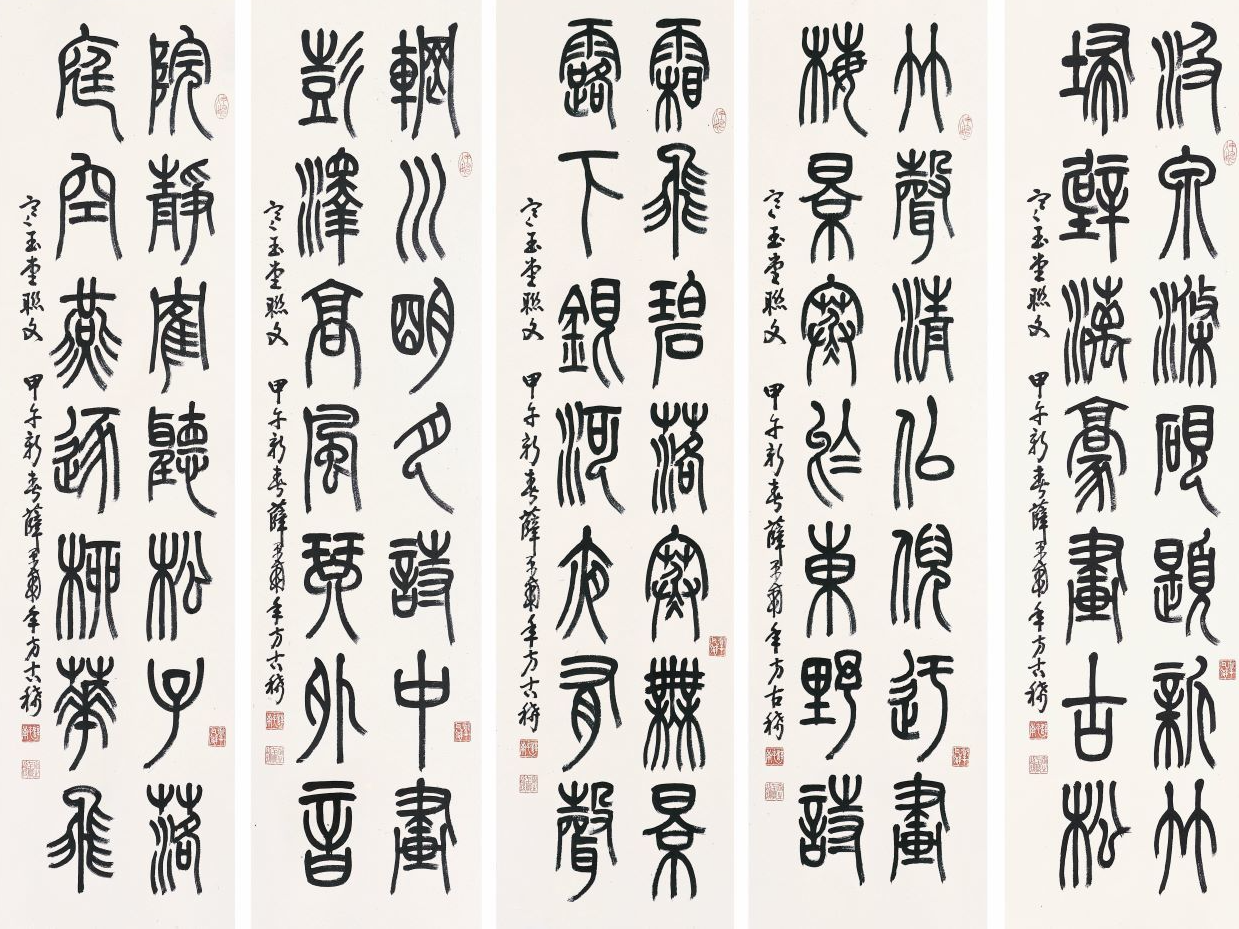 汲泉滌硯題新竹
埽壁漓豪畫古松
寒玉堂聯文 甲午新春薛平南年方古稀
竹聲清似倪迂畫
梅景寒於東野詩
寒玉堂聯文 甲午新春薛平南年方古稀
霜飛碧落寒無景
露下銀河夜有聲
寒玉堂聯文 甲午新春薛平南年方古稀
輞川明月詩中畫
彭澤高風琴外音
寒玉堂聯文 甲午新春薛平南年方古稀
院靜隺聽松子落
庭空燕逐柳華飛
寒玉堂聯文 甲午新春薛平南年方古稀